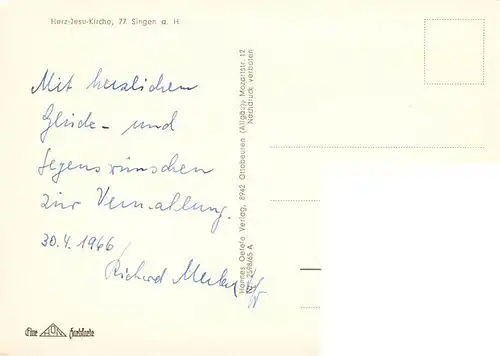 Herz-Jesu-Kirche, 77 Singen a. H.
Mit herzlichen
Glück- und
Segenswünschen
zur Vermählung.
30.4.1966
Richard
Hannes Oefele Verlag, 8942 Ottobeuren (Allgäu), Mozartstr. 12
Nachdruck verboten
Eine HOVO Farbkarte